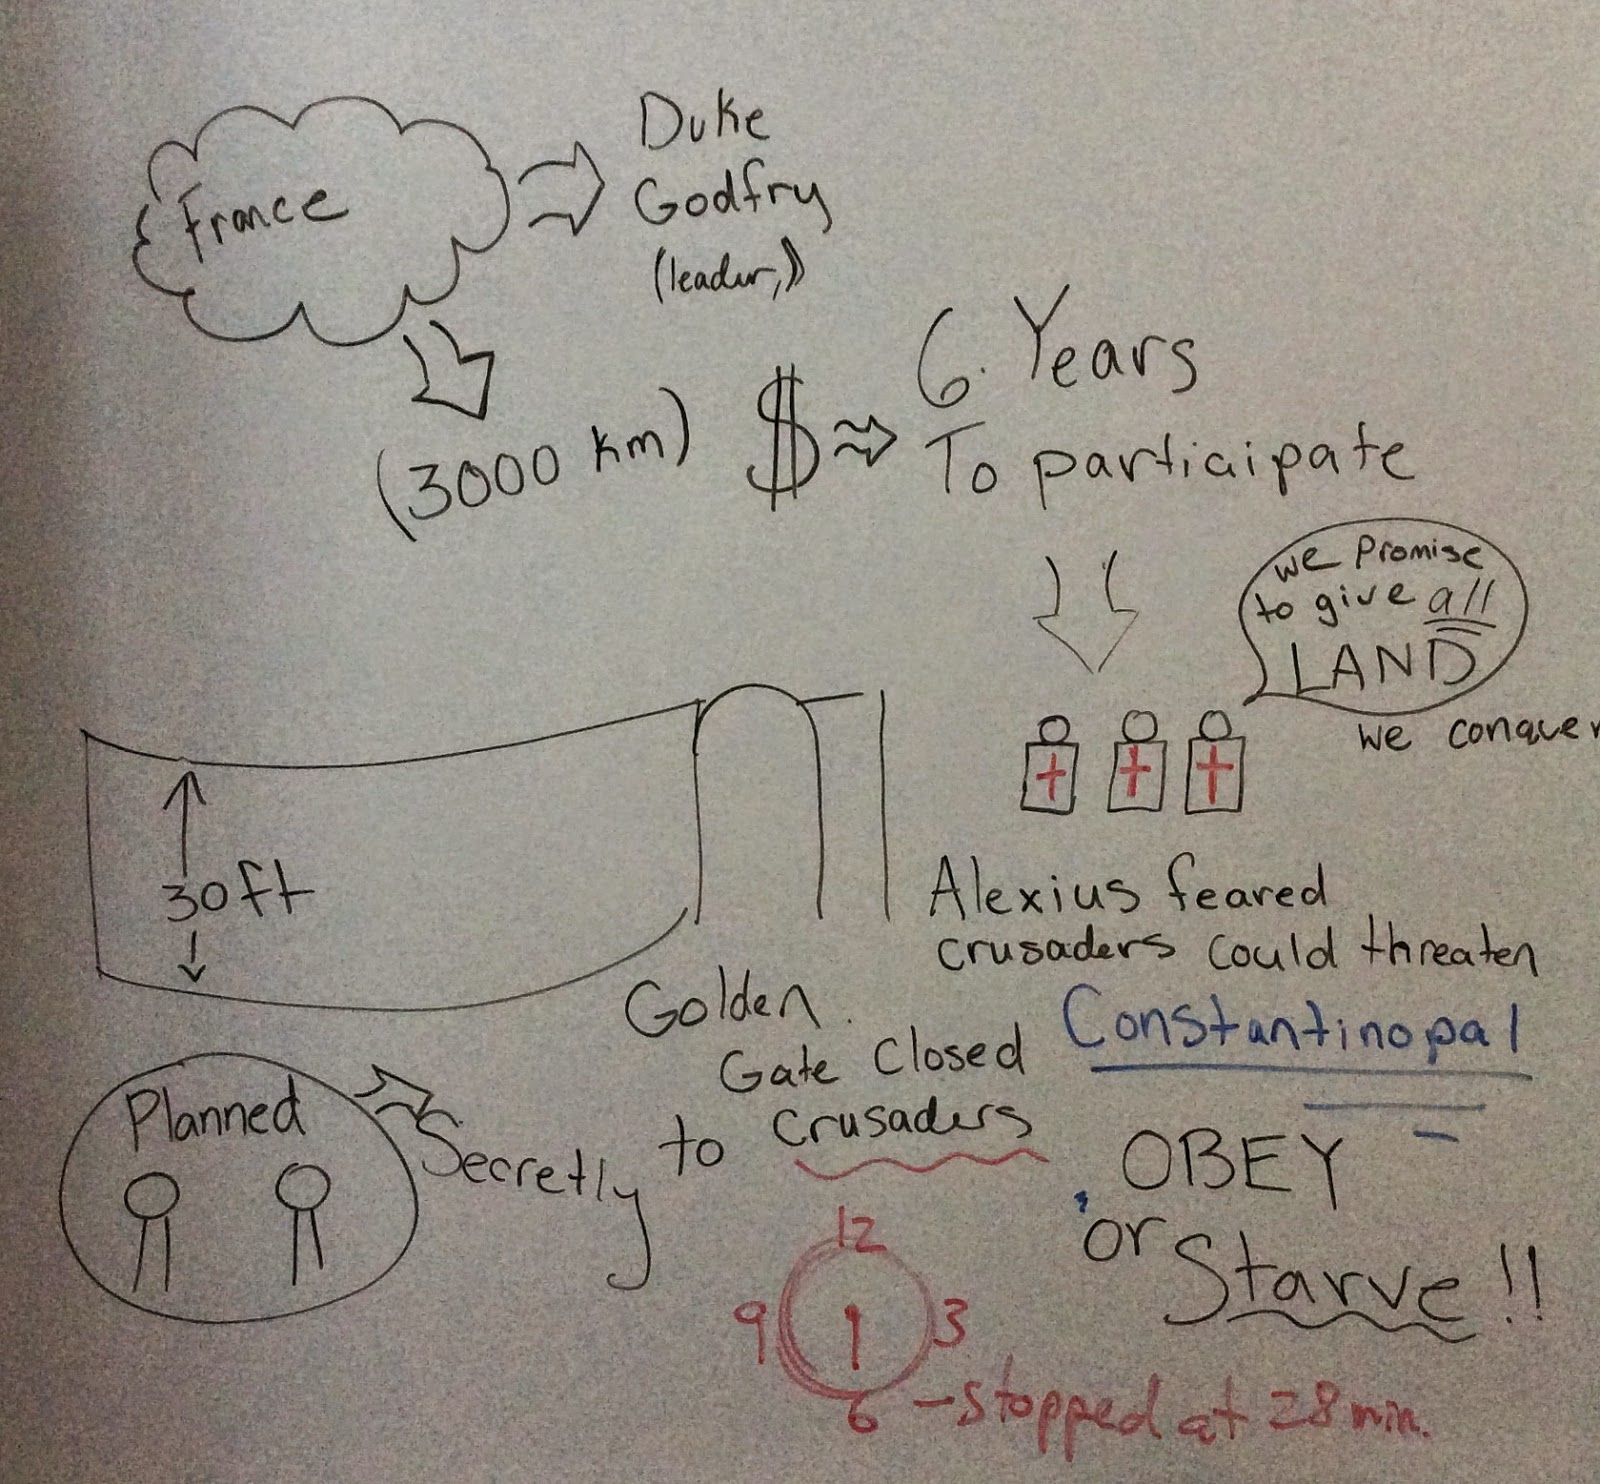 France
Duke
Godfry
(leader,)
(3000 km)
$
6. Years
To participate
we Promise
to give all
LAND
we conquer
30ft
Alexius feared
crusaders could threaten
Constantinopal
Golden
Gate Closed
to Crusaders
Planned
Secretly
OBEY
or
Starve !!
12
9
3
6 - stopped at 28 min.